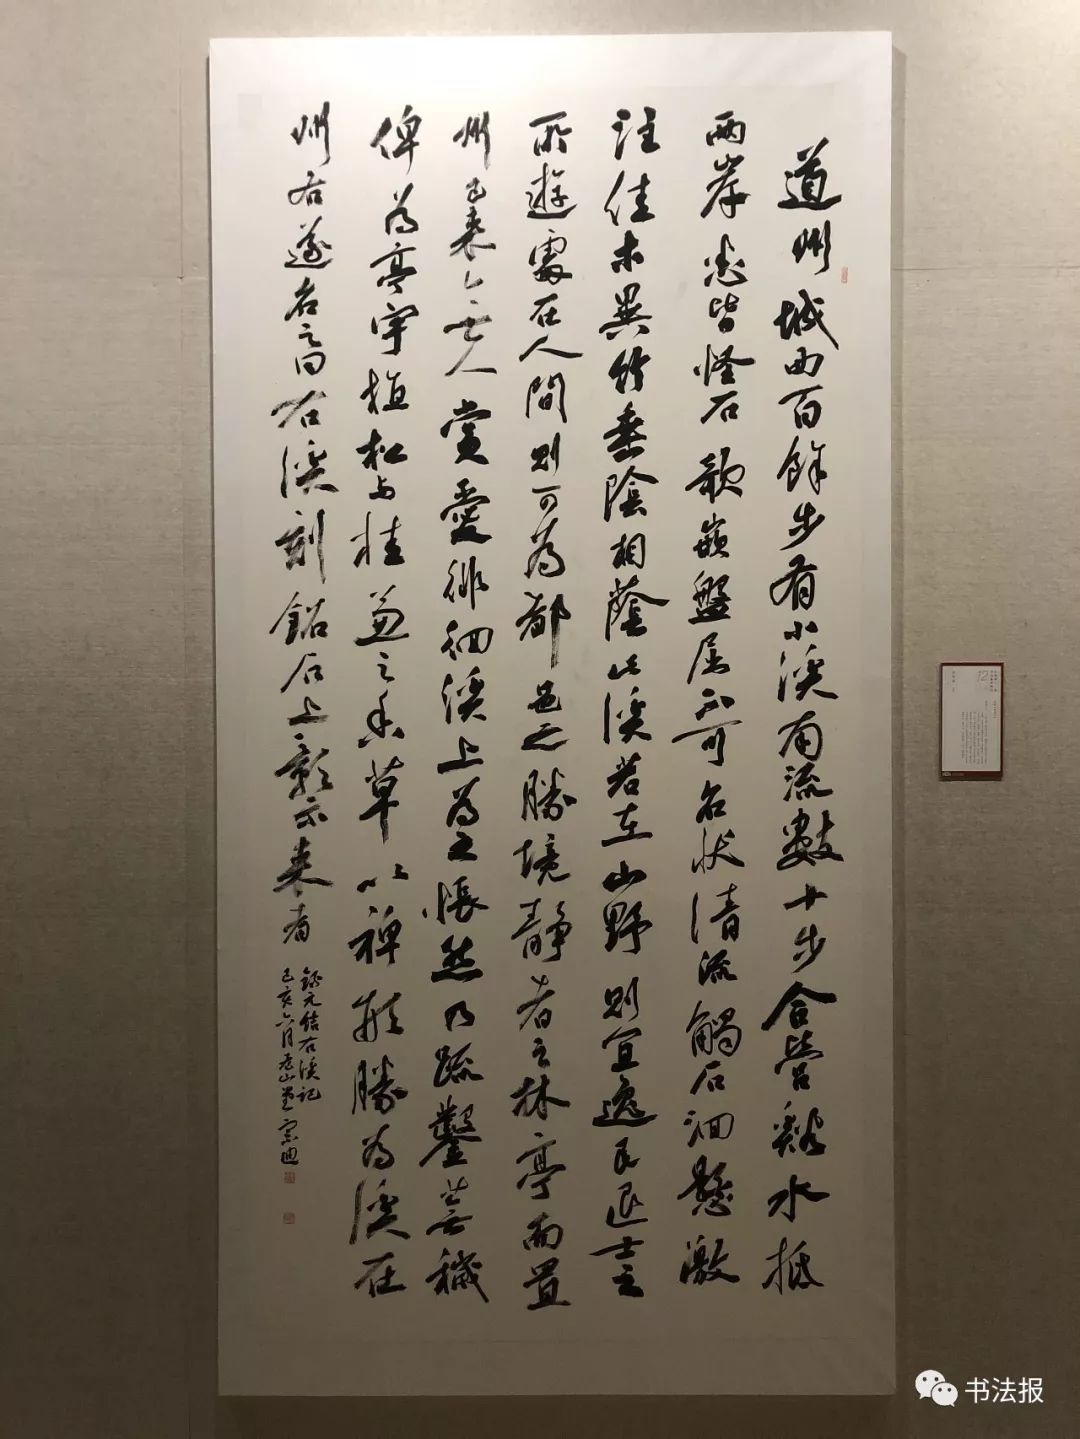 道州城西百餘步有小溪南流數十步合營谿水抵
兩岸悉皆怪石欹嵌盤屈不可名狀清流觸石洄懸激
注佳木異竹垂陰相蔭此溪若在山野則宜逸民退士之
所遊處在人間則可為都邑之勝境靜者之林亭而置
州已來無人賞愛徘徊溪上為之悵然乃疏鑿蕪穢
俾為亭宇植松与桂兼之香草以裨形勝為溪在
州右遂名之曰右溪刻銘石上彰示來者
錄元結右溪記
己亥六月
书法报